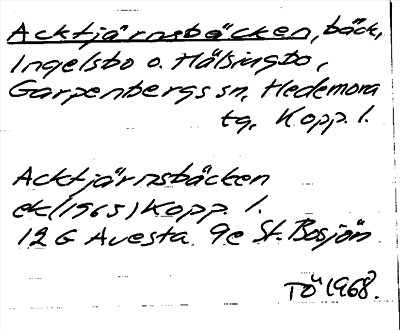 Acktjärnsbäcken, bäck,
Ingelsbo o. Hälsingbo,
Garpenbergs sn, Hedemora
tg, Kopp. l.
Acktjärnsbäcken
ek (1965) Kopp. l.
12G Avesta 9e St. Bosjön
TÖ 1968.